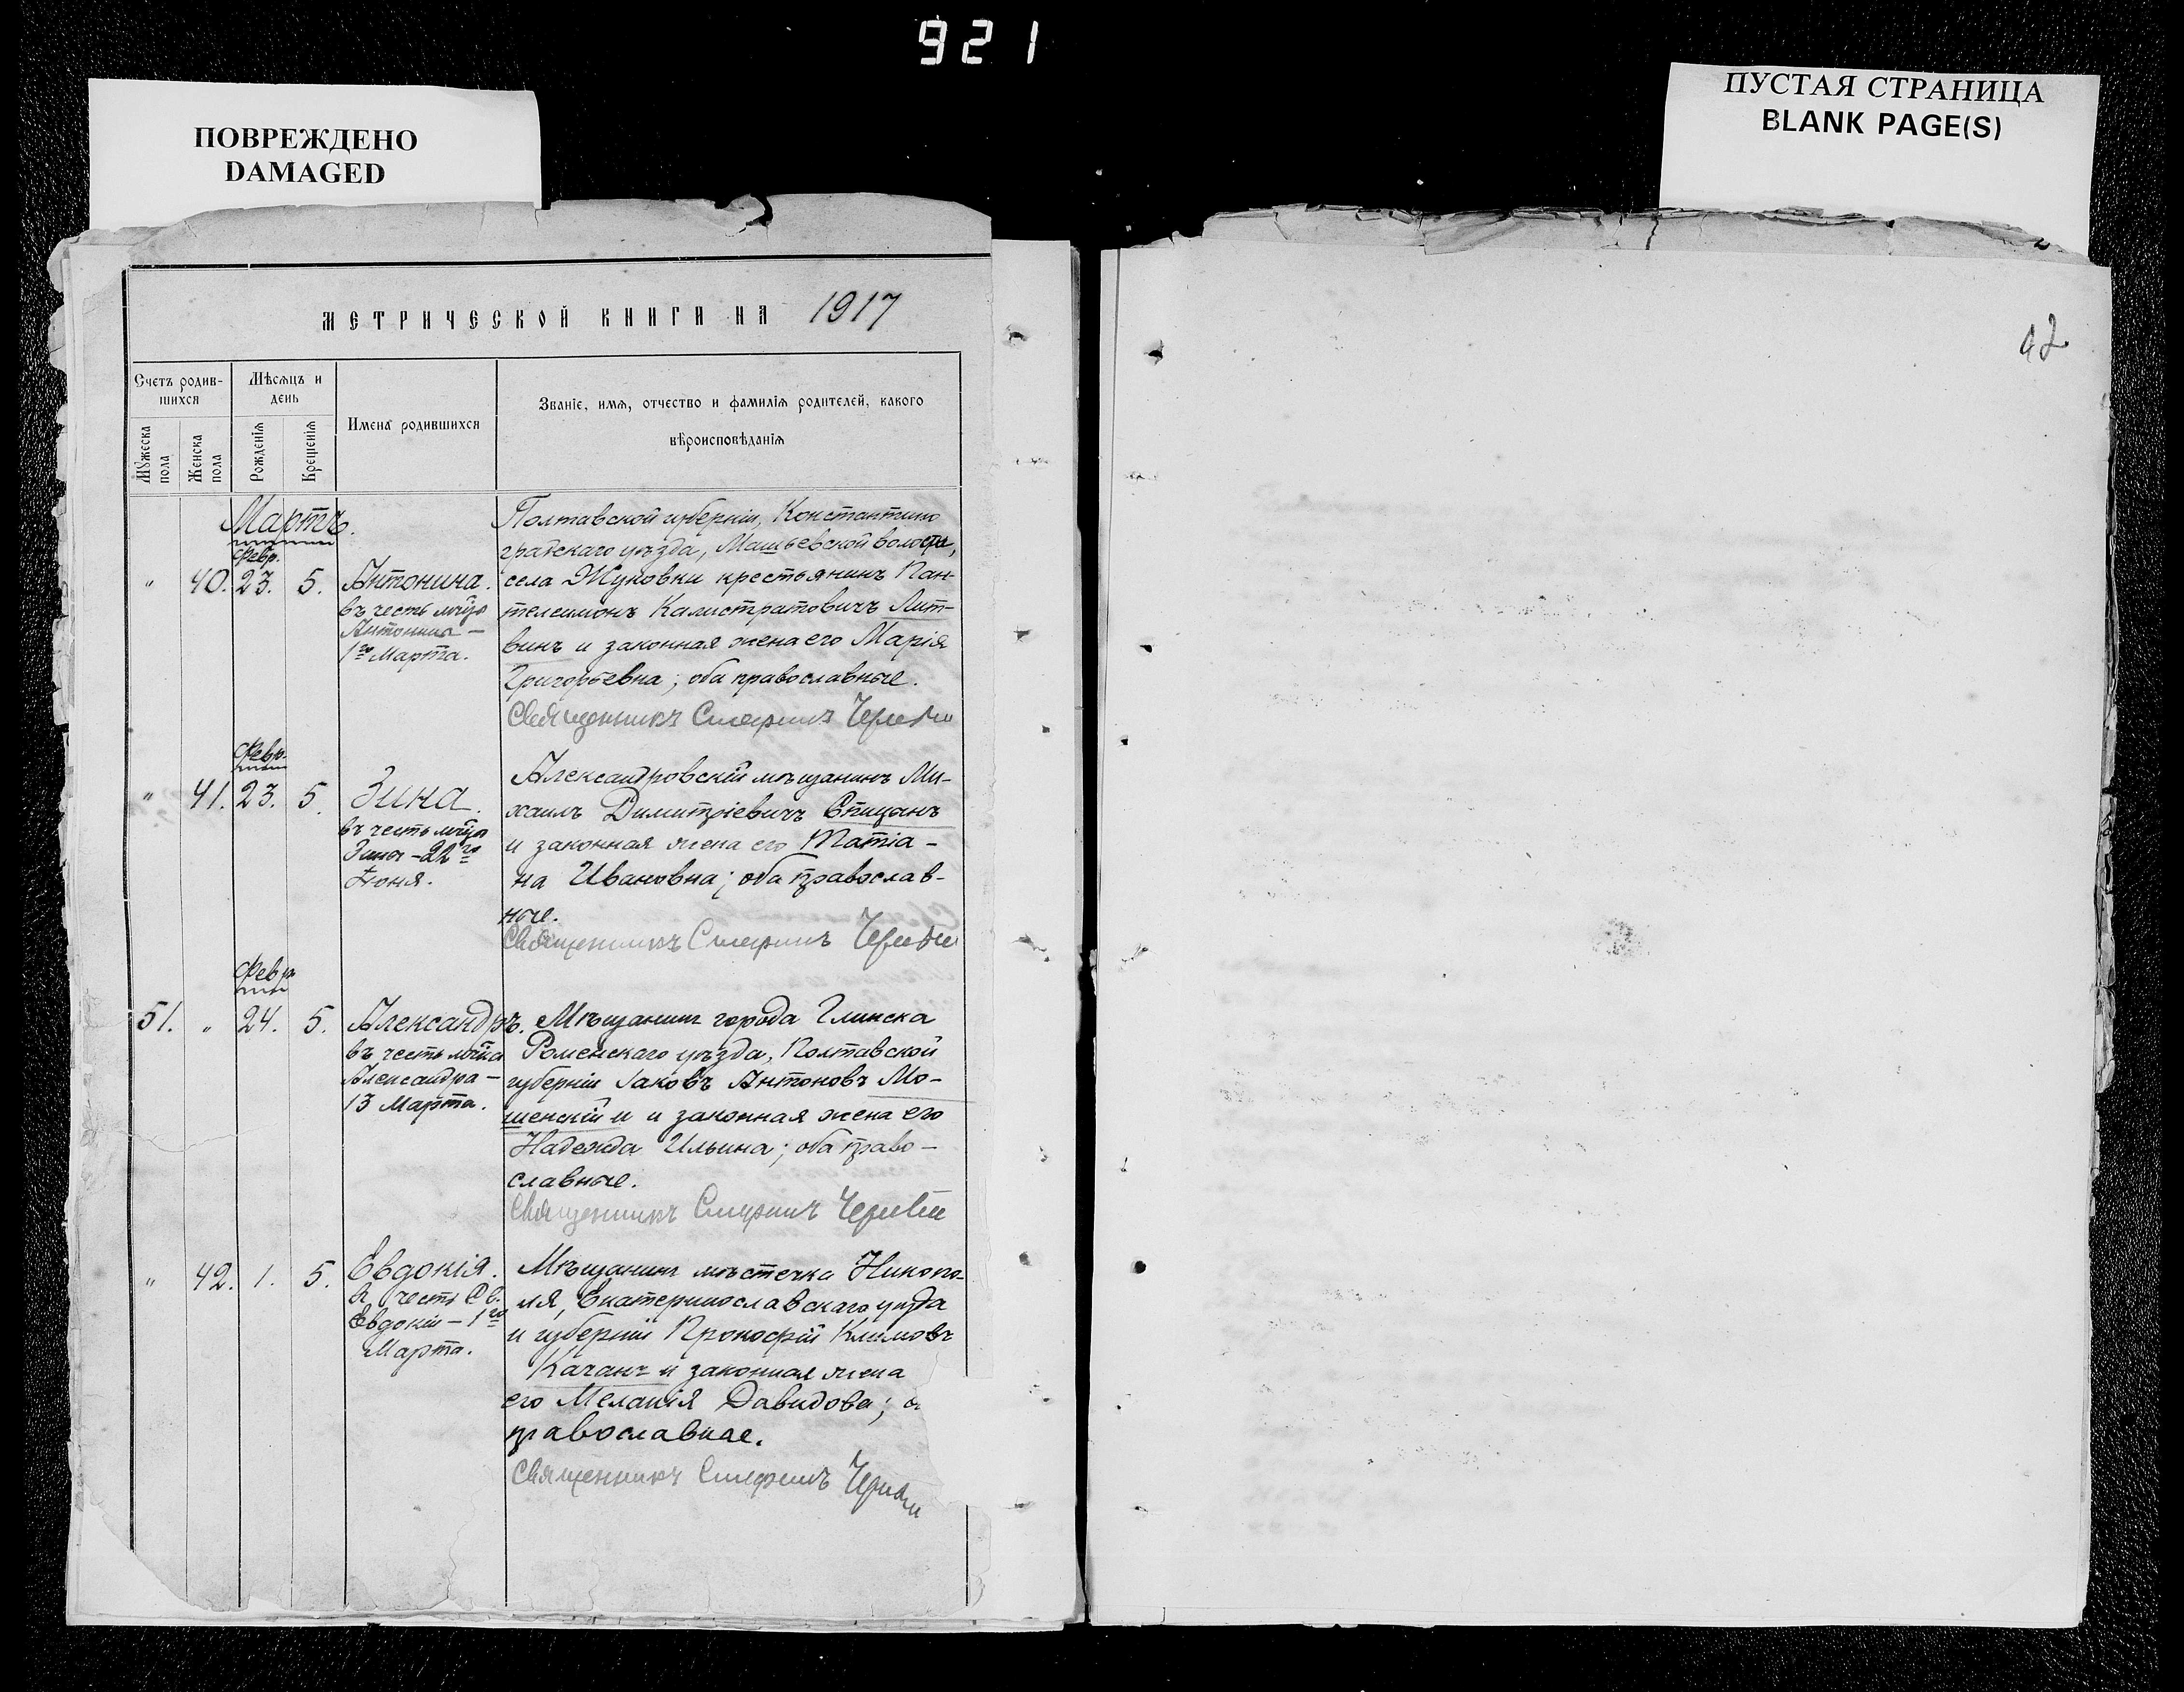 921
ПОВРЕЖДЕНО
DAMAGED
ПУСТАЯ СТРАНИЦА
BLANK PAGE(S)
МЕТРИЧЕСКОЙ КНИГИ НА 1917
Счетъ родив-
шихся
Мѣсяцъ и
день
Имена родившихся
Званіе, имя, отчество и фамилія родителей, какого
вѣроисповѣданія
Мужеска
пола
Женска
пола
Рожденія
Крещенія
Мартъ.
Февр.
" 40. 23. 5. Антонина.
въ честь мчцы
Антонины –
1го Марта.
Полтавской губерніи, Константино
градскаго уѣзда, Машьевской волости,
села Жуковки крестьянинъ Пан-
телеимонъ Калистратовичъ Лит-
винъ и законная жена его Марія
Григорьевна; оба православные.
Священникъ
Февр.
" 41. 23. 5. Зина.
въ честь мчцы
Зины – 22го
Іюня.
Александровскій мѣщанинъ Ми-
хаилъ Димитріевичъ Спицынъ
и законная жена его Татіа-
на Ивановна; оба православ-
ные.
Священникъ
Февр.
51. " 24. 5. Александръ.
въ честь мчка
Александра –
13 Марта.
Мѣщанинъ города Глинска
Роменскаго уѣзда, Полтавской
губерніи Іаковъ Антоновъ Мо-
шенскій и и законная жена его
Надежда Ильина; оба право-
славные.
Священникъ
" 42. 1. 5. Евдокія.
въ честь Св.
Евдокіи – 1го
Марта.
Мѣщанинъ мѣстечка Никопо-
ля, Екатеринославскаго уѣзда
и губерніи Прокофій Климовъ
Качанъ и законная жена
его Меланія Давидова; о
православные.
Священникъ
42